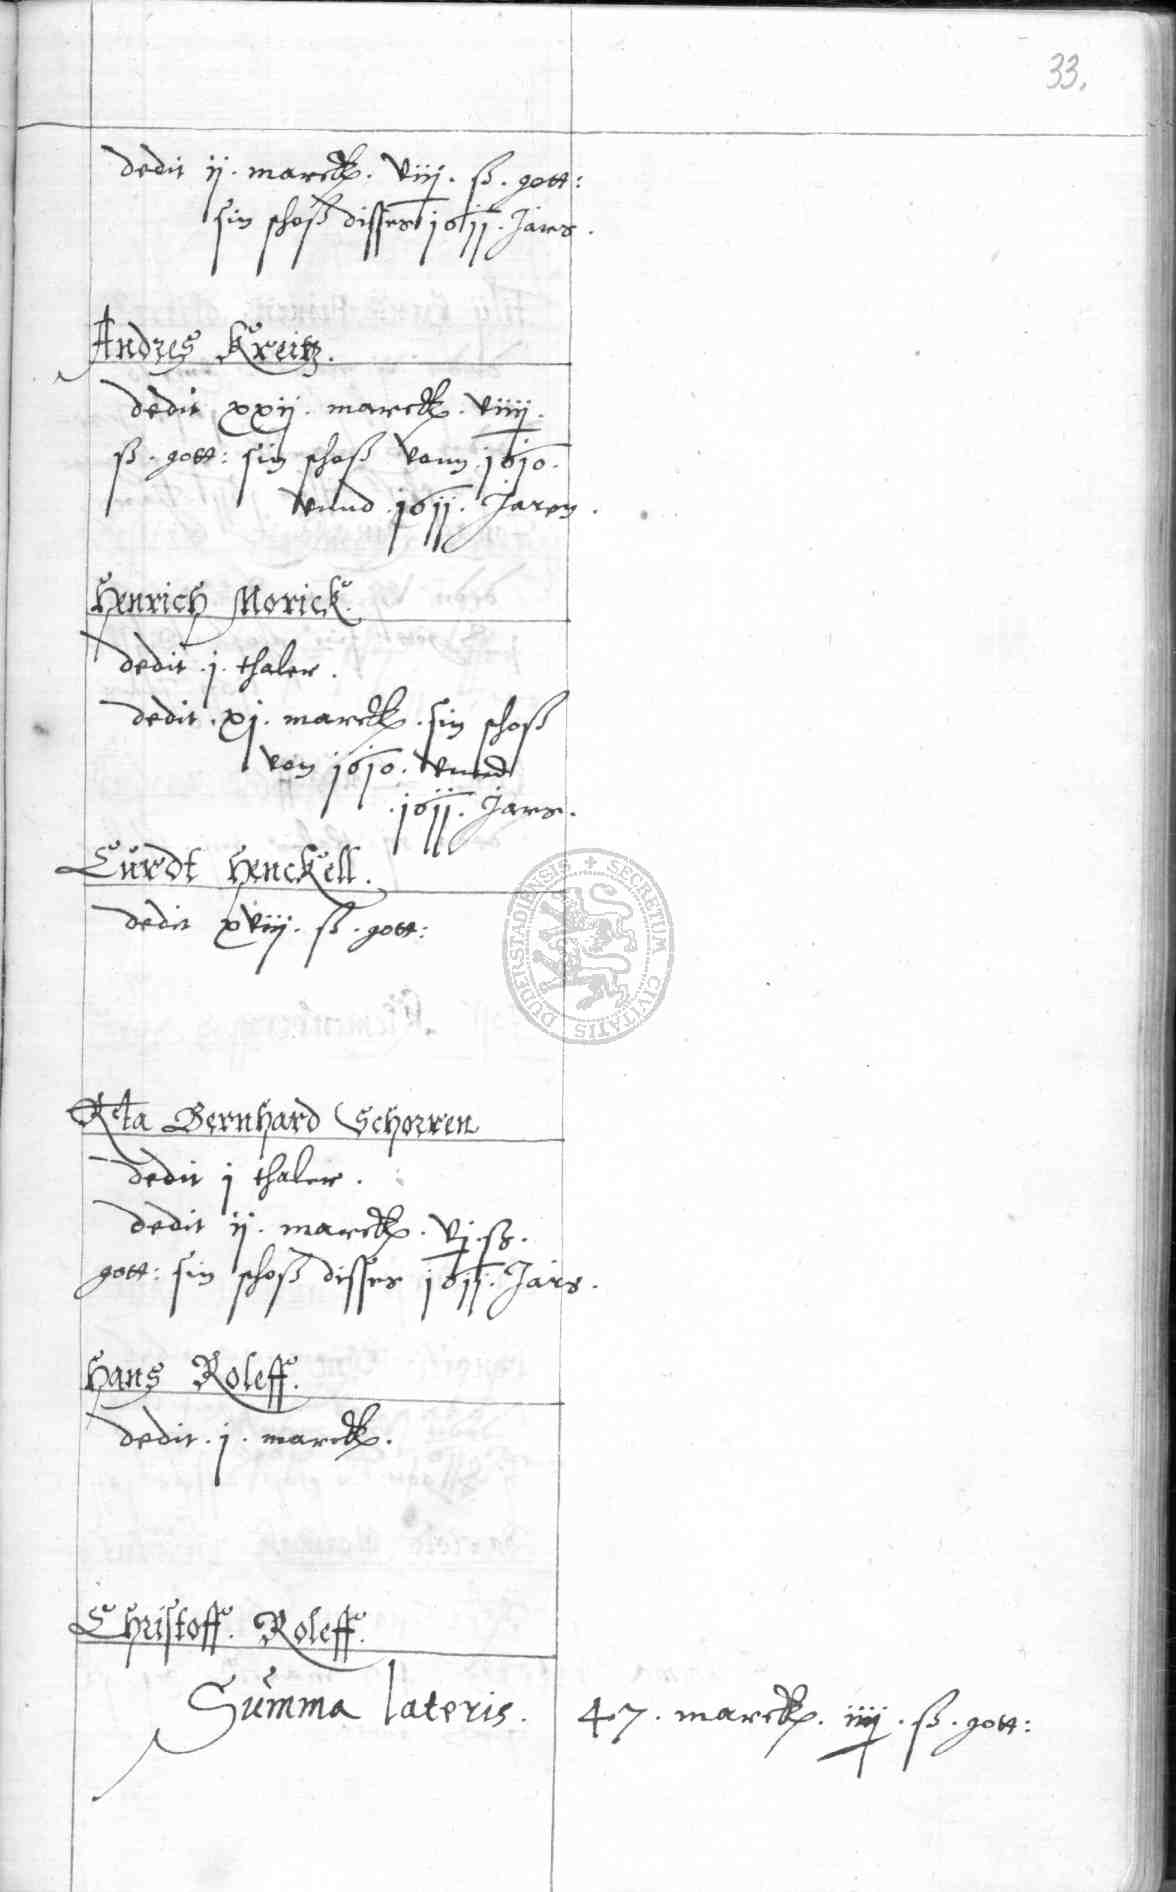 33.
dedit ij. marck. viij. ß. gott:
sin schoß disses 1611. Jars.
Andres Kreitz.
dedit xxij. marck. viiij.
ß. gott: sin schoß vonn 1610.
vnnd 1611. Jaren.
Henrich Morick.
dedit .j. thaler.
dedit .xj. marck. sin schoß
von 1610. vnnd
.1611. Jars.
Curdt Henckell.
dedit xviij. ß. gott:
SECRETUM CIVITATIS DUDERSTADIENSIS
Rcta Bernhard Schorren
dedit j thaler.
dedit ij. marck. vj. ß.
gott: sin schoß disses 1611. Jars.
Hans Roleff.
dedit .j. marck.
Christoff. Roleff.
Summa lateris. 47. marck. iiij. ß. gott: